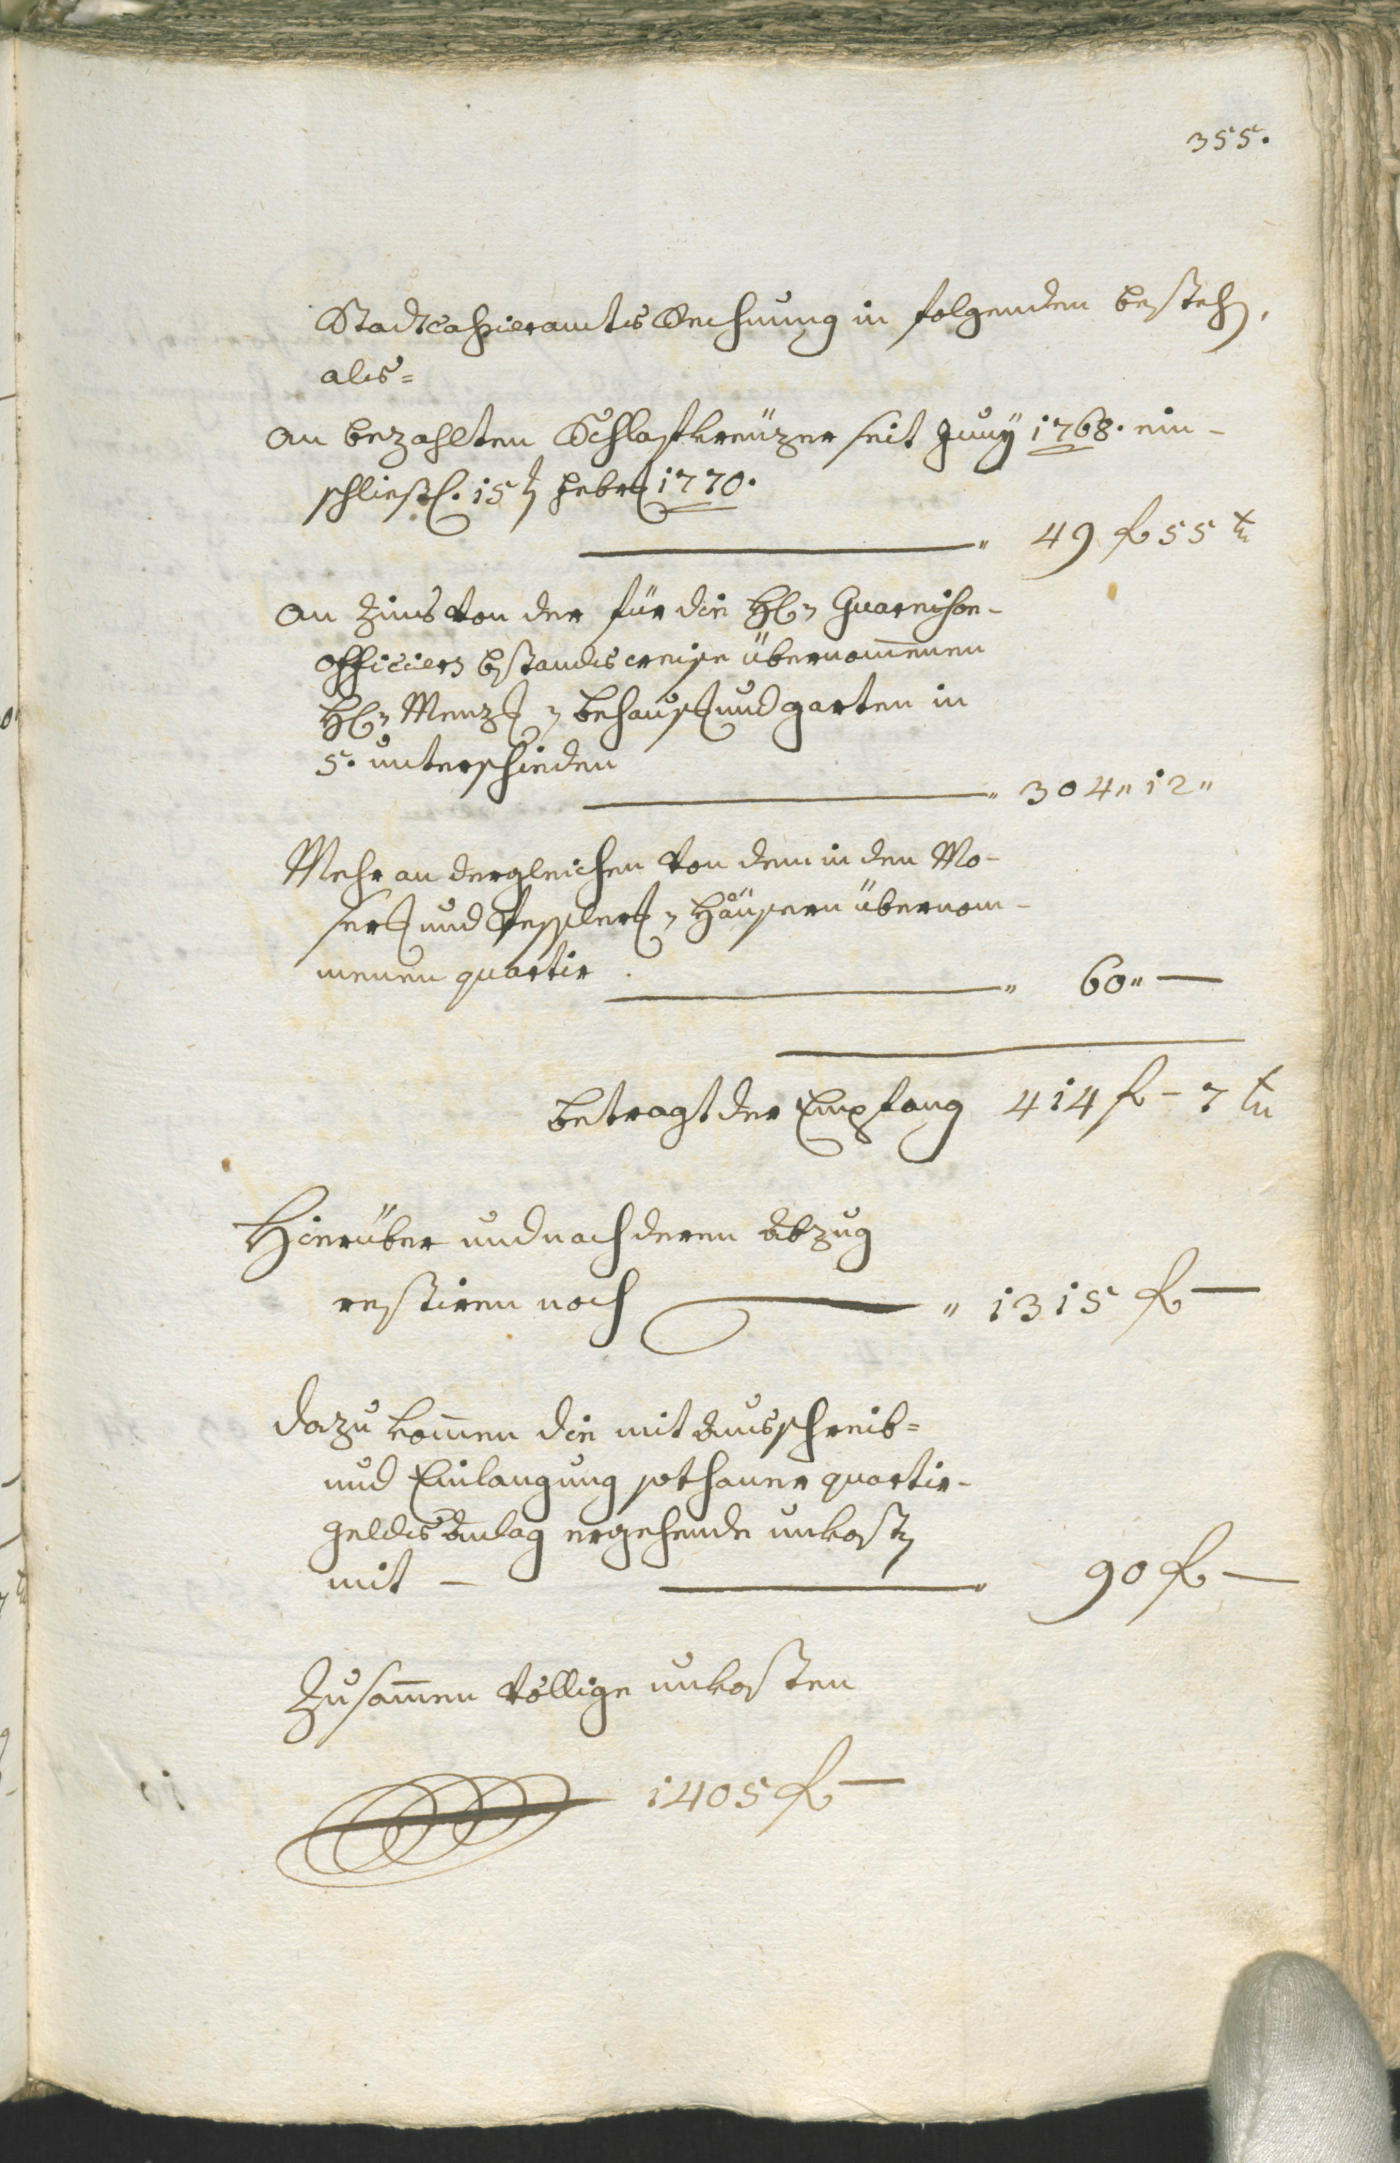 355.
Stadtcassieramts Rechnung in folgenden besteh,
als=
An bezahlten Schlafkreüzer seit Juny 1768. ein-
schließl. 15t Febr 1770.
" 49 fl 55 x
An Zins von der für die H. Guarnison-
officiers bstandsweise übernommenen
H. Menz behaus und garten in
5. unterschieden
" 304 " 12 "
Mehr an dergleichen von denn in den Mo-
ser und Häüsern übernom-
menen quartir
" 60 " —
betragt der Empfang 414 fl – 7 x
Hierüber und nach deren abzug
restiren noch " 1315 fl —
dazu kommen die mit ausschreib=
und Einlangung sothaner quartir-
gelds Anlag ergehende unkost
mit — " 90 fl —
Zusammen völlige unkosten
1405 fl —